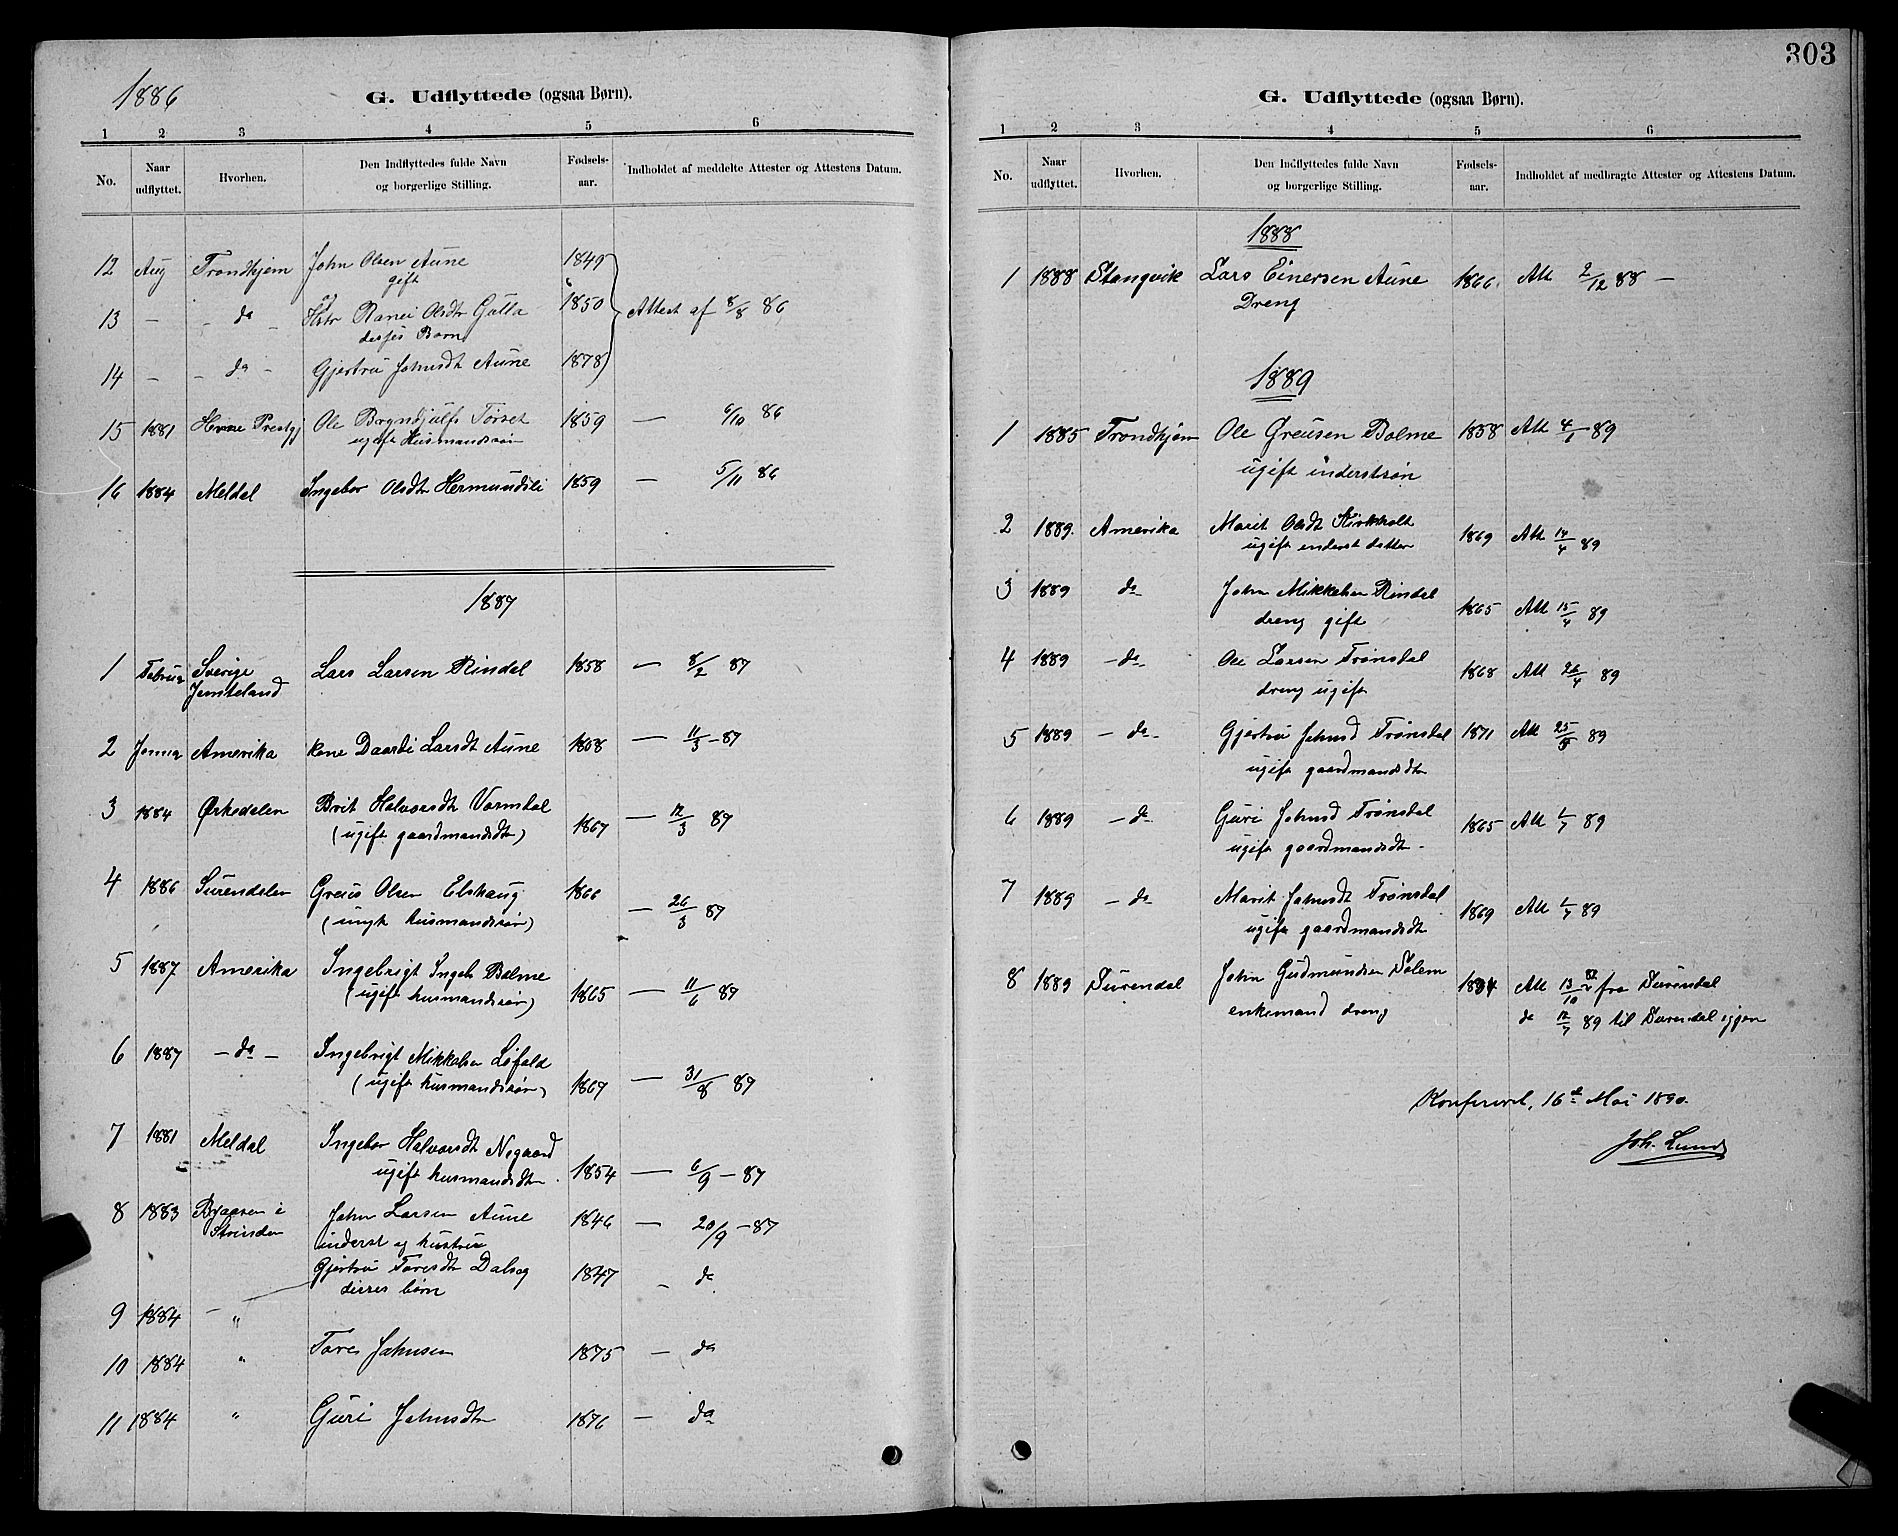 1886
G. Udflyttede (ogsaa Børn).
1 2 3 4 5 6
No. Naar udflyttet. Hvorhen. Den Indflyttedes fulde Navn og borgerlige Stilling. Fødsels-aar. Indholdet af meddelte Attester og Attestens Datum.
12 Aug Trondhjem John Olsen Aune 1849
gift
13 — - da - Ranei Olsdtr Gulla 1850 Attest af 8/8 86
deres Børn
14 — - da - Gjertru Johnsdt Aune 1878
15 1881 Hevne Prestgj Ole Bryndjulfs Tørset 1859 — 6/10 86
ugift Husmandssøn
16 1884 Meldal Ingebor Olsdtr Hermundsli 1859 — 5/11 86
1887
1 Februar Sverige Lars Larsen Rindal 1858 — 8/2 87
Jemteland
2 Amerika kone Daardi Larsdt Aune 1808 — 11/3 - 87
3 1884 Ørkedalen Brit Halvorsdt Vormdal
(ugift gaardmandsdtr) 1867 — 12/3 87
4 1886 Surendalen Greus Olsen Elshaug 1866
(ungk husmandssøn) — 26/3 87
5 1887 Amerika Ingebrigt Ingebr Bolme
(ugift husmandssøn) 1865 — 11/6 87
6 1887 - da - Ingebrigt Mikkelsen Løfald
(ugift husmandssøn) 1867 — 31/8 87
7 1881 Meldal Ingebor Halvorsdt Negaard
ugift husmandsdtr 1854 — 6/9 - 87
8 1883 Braasen i John Larsen Aune 1846 — 20/9 - 87
Strinden inderst og hustru
Gjertru Toresdtr Dalseg 1847 — da
deres børn
9 1884 — "
10 1884 " Tore Johnsen 1875 — da
11 1884 " Guri Johnsdtr 1876 — da
303
G. Udflyttede (ogsaa Børn).
1 2 3 4 5 6
No. Naar udflyttet. Hvorhen. Den Indflyttedes fulde Navn og borgerlige Stilling. Fødsels-aar. Indholdet af medbragte Attester og Attestens Datum.
1888
1 1888 Stangvik Lars Einersen Aune 1866. Att 2/12 88 —
Dreng
1889
1 1885 Trondhjem Ole Greusen Bolme 1858 Att 4/1 89
ugift inderstsøn
2 1889. Amerika Marit Olsdt Kirkholt
ugift inderst datter 1869 Att 14/4 89
3 1889 da John Mikkelsen Rindal
dreng gift 1865 Att 15/4 89
4 1889 - da - Ole Larsen Trønsdal
dreng ugift 1868 Att 26/4 89
5 1889 - da - Gjertru Johnsd Trønsdal 1871 Att 25/5 89
ugift gaardmandsdtr
6 1889 - da - Guri Johnsd Trønsdal
ugift gaardmandsdtr 1865 Att 1/7 89
7 1889 - da - Marit Johnsdt Trønsdal
ugift gaardmandsdt 1869 Att 1/7 89
8 1889 Surendal John Gudmundsen Solem 1834 Att 13/10 fra Surendal
enkemand dreng da 12/7 89 til Surendal igjen
Konfereret, 16de Mai 1890.
Joh. Lund